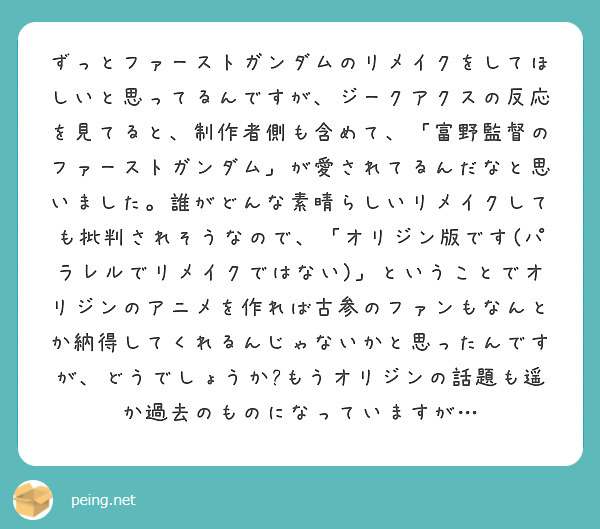 ずっとファーストガンダムのリメイクをしてほ
しいと思ってるんですが、ジークアクスの反応
を見てると、制作者側も含めて、「富野監督の
ファーストガンダム」が愛されてるんだなと思
いました。誰がどんな素晴らしいリメイクして
も批判されそうなので、「オリジン版です(パ
ラレルでリメイクではない)」ということでオ
リジンのアニメを作れば古参のファンもなんと
か納得してくれるんじゃないかと思ったんです
が、どうでしょうか?もうオリジンの話題も遥
か過去のものになっていますが…
peing.net